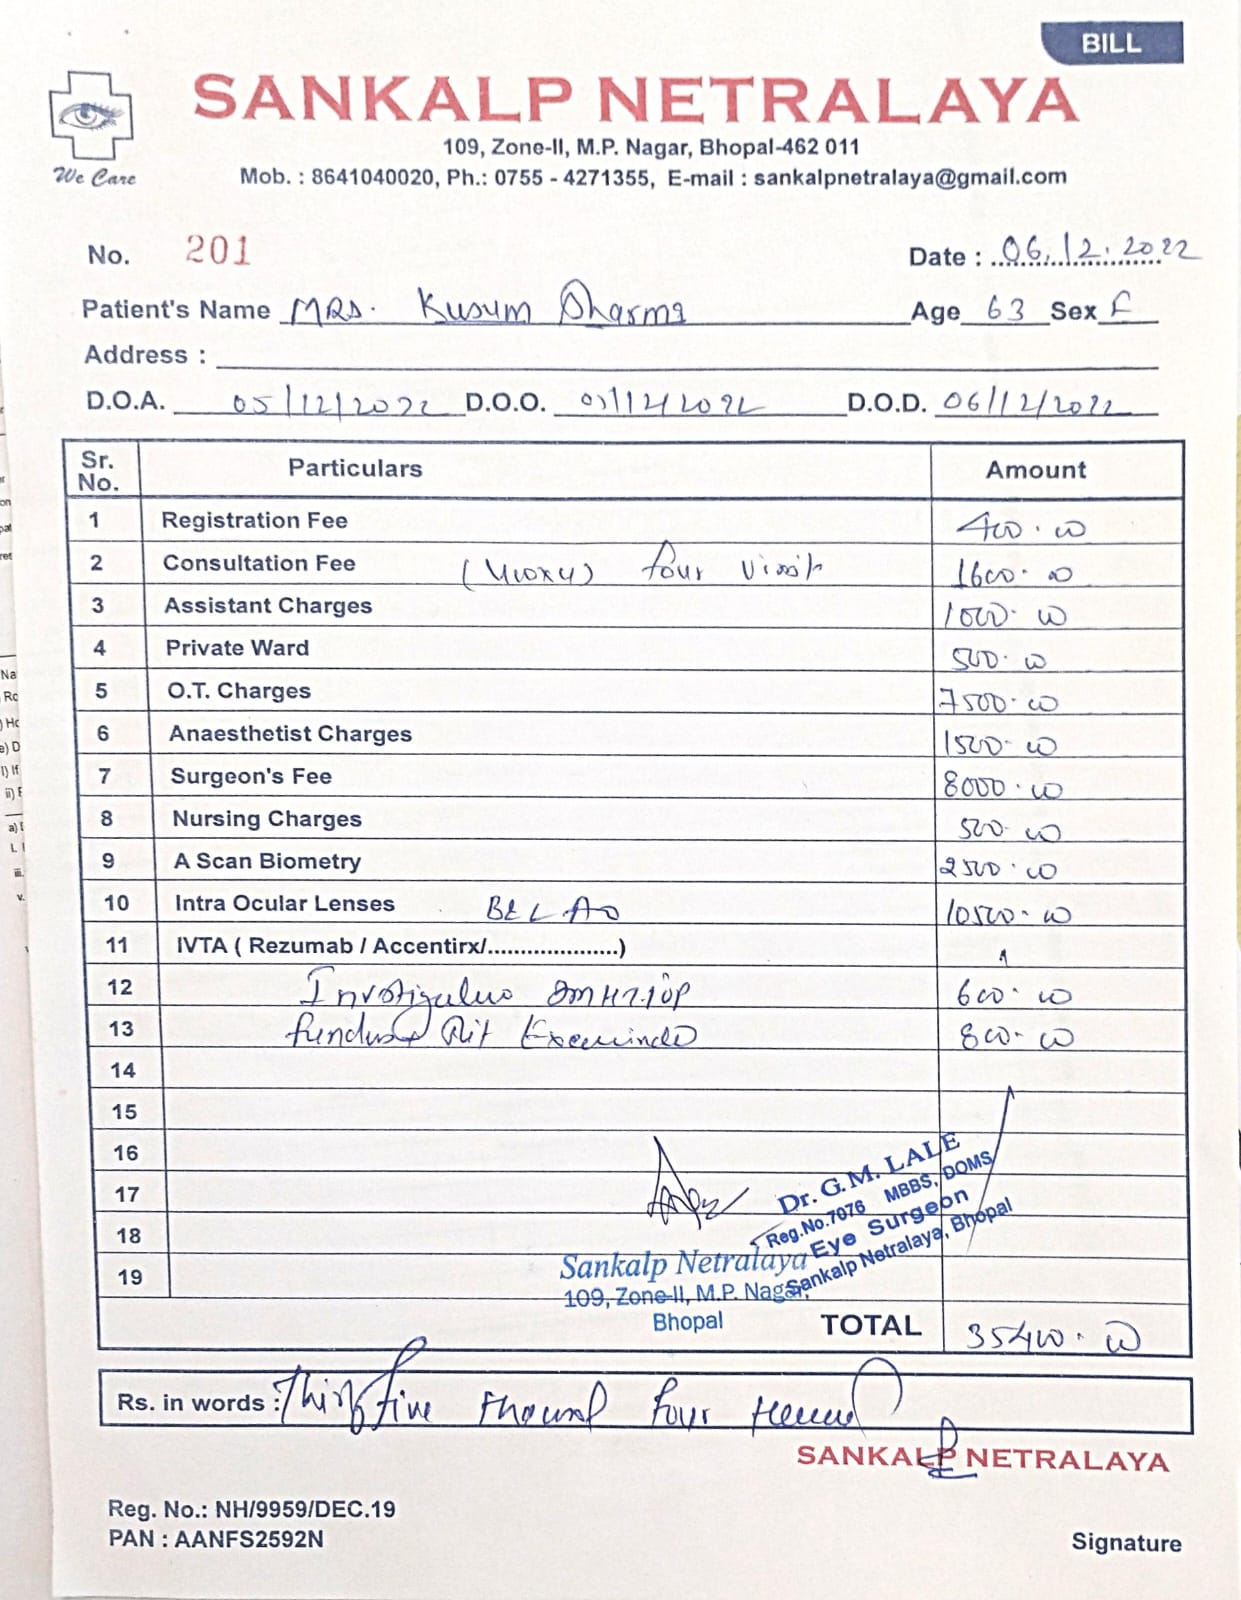 BILL
SANKALP NETRALAYA
109, Zone-II, M.P. Nagar, Bhopal-462 011
We Care
Mob. : 8641040020, Ph.: 0755 - 4271355, E-mail : sankalpnetralaya@gmail.com
No. 201 Date : 06.12.2022
Patient's Name MRS. Kusum Sharma Age 63 Sex F
Address :
D.O.A. 05/12/2022 D.O.O. D.O.D. 06/12/2022
Sr. No. Particulars Amount
1 Registration Fee 400.00
2 Consultation Fee (400x4) four visit 1600.00
3 Assistant Charges 1000.00
4 Private Ward 500.00
5 O.T. Charges 7500.00
6 Anaesthetist Charges 1500.00
7 Surgeon's Fee 8000.00
8 Nursing Charges 500.00
9 A Scan Biometry 2500.00
10 Intra Ocular Lenses 10500.00
11 IVTA ( Rezumab / Accentirx/....................)
12 600.00
13 800.00
14
15
16
17
18
19
Dr. G.M. LALE
Reg.No.7076 MBBS, DOMS
Eye Surgeon
Sankalp Netralaya, Bhopal
Sankalp Netralaya
109, Zone-II, M.P. Nagar,
Bhopal
TOTAL 35400.00
Rs. in words : Thirty Five Thousand Four Hundred
SANKALP NETRALAYA
Reg. No.: NH/9959/DEC.19
PAN : AANFS2592N
Signature